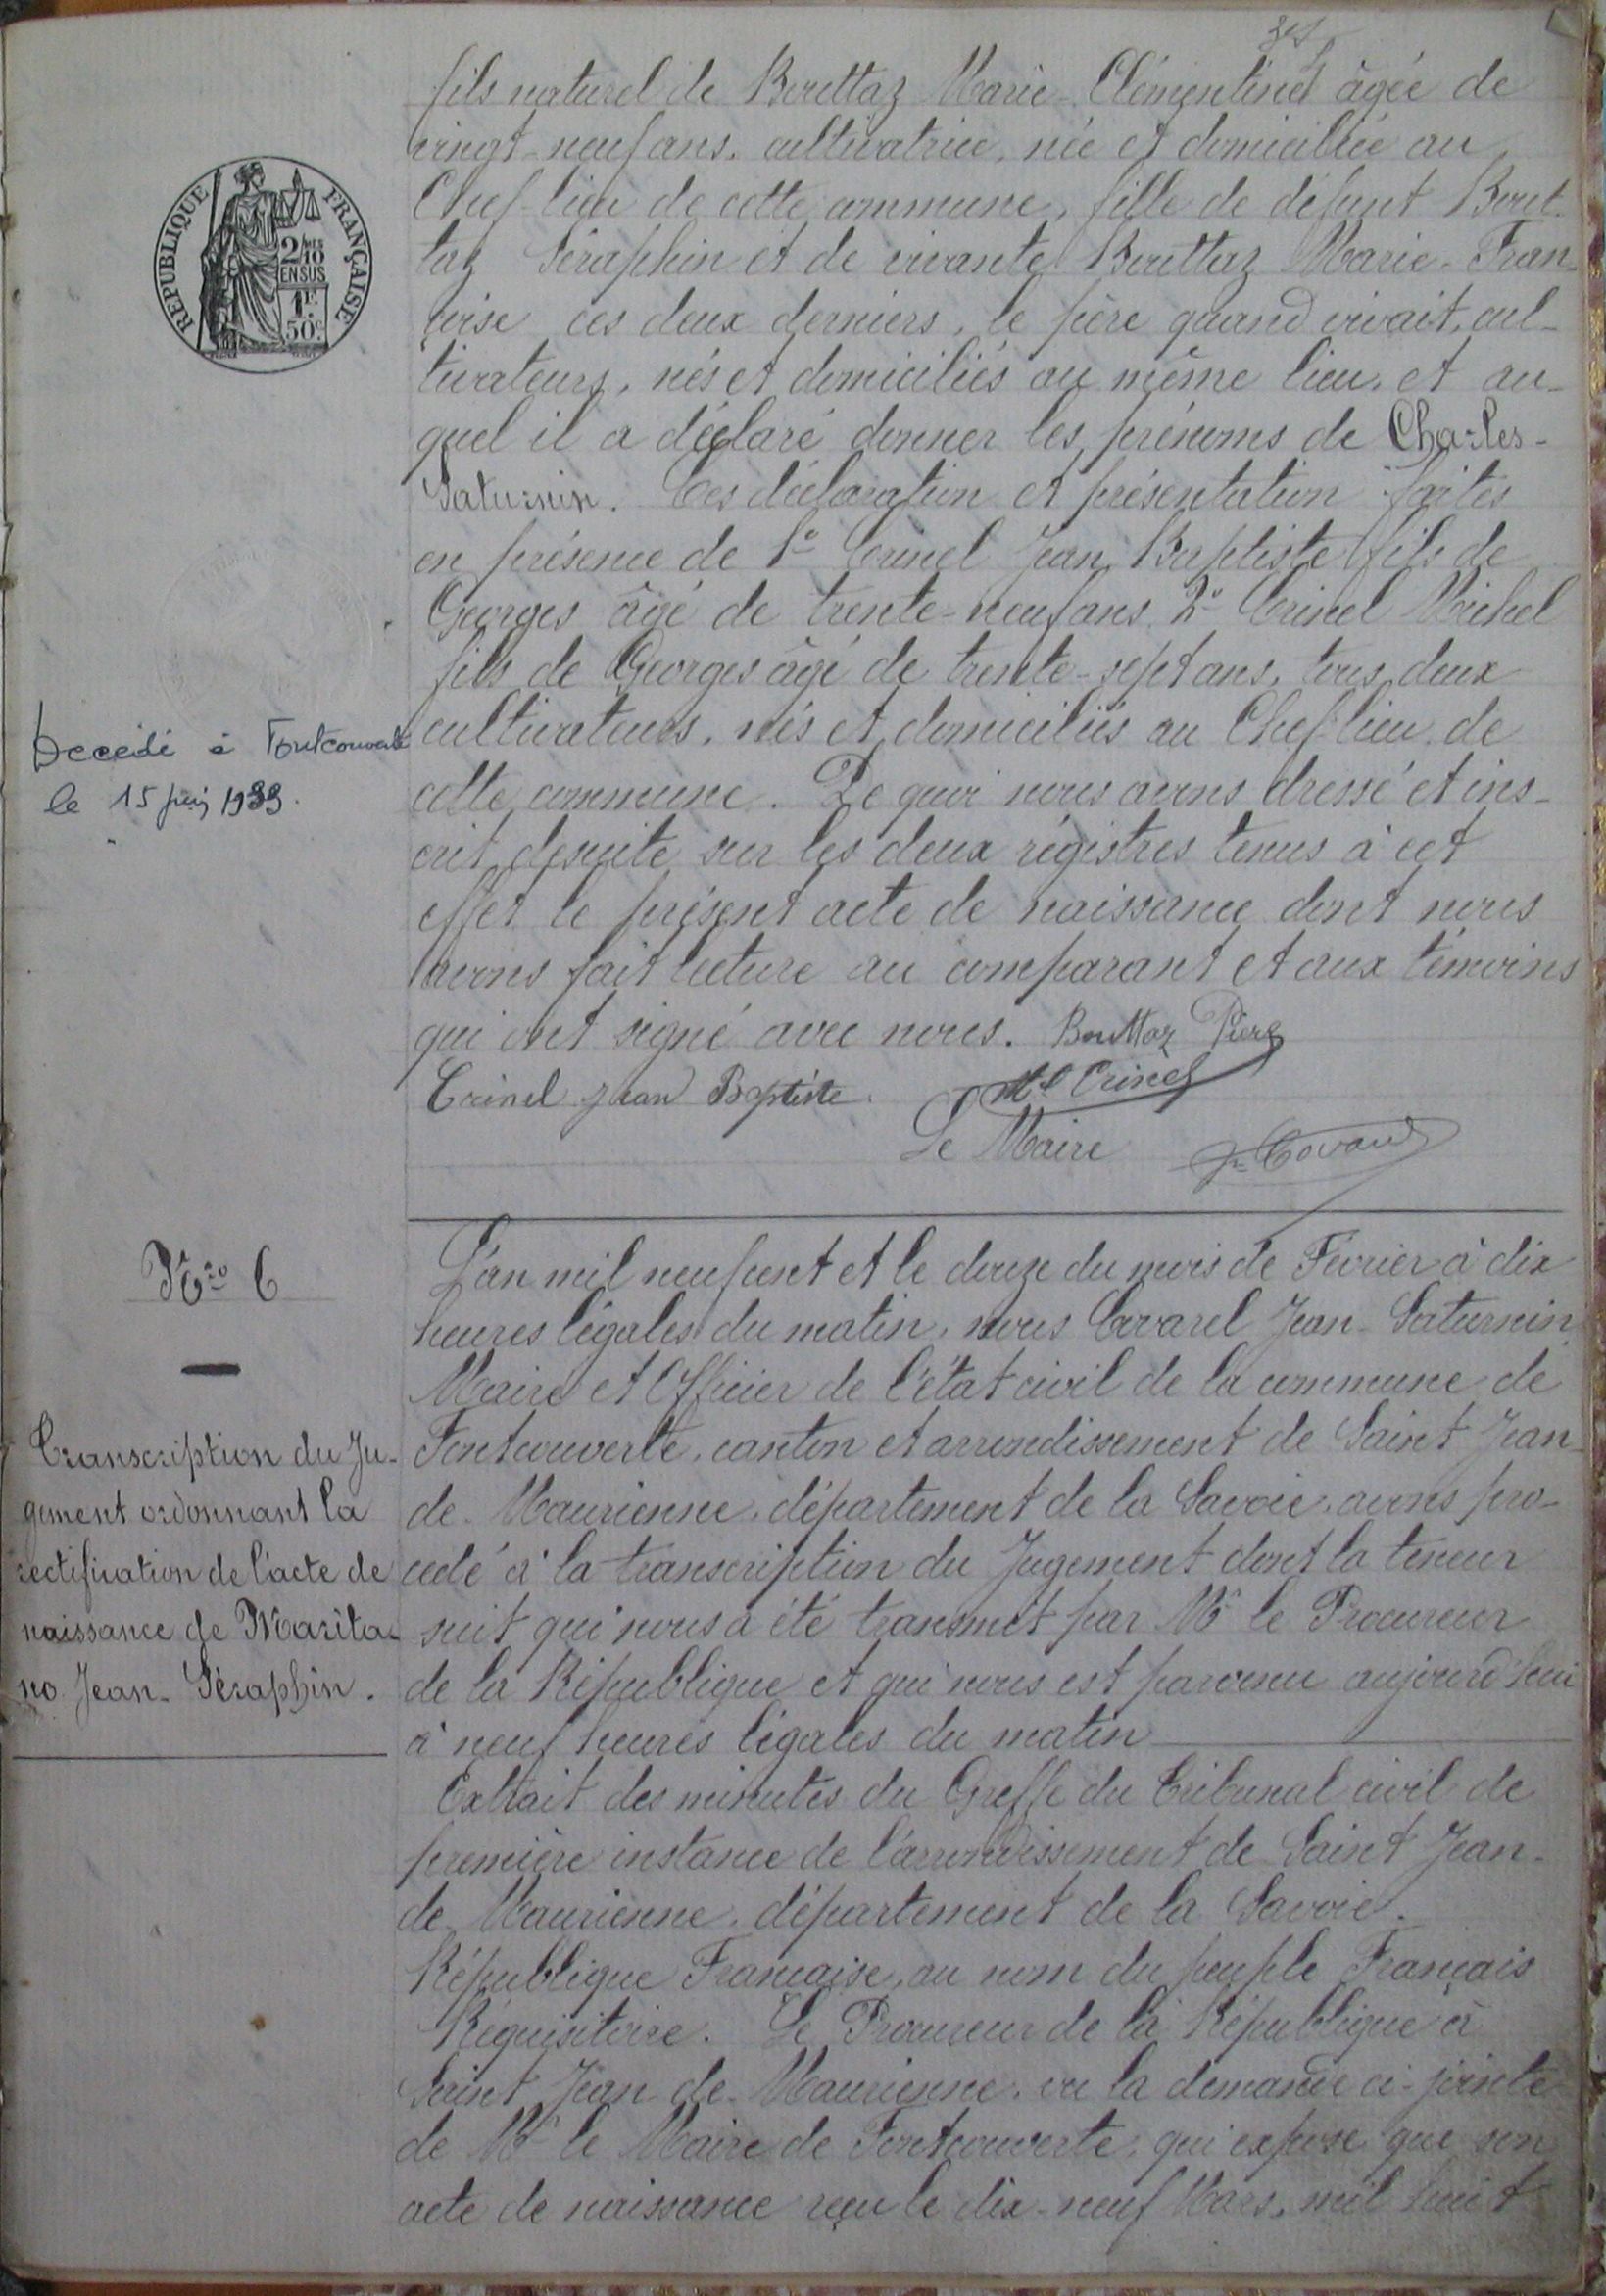 fils naturel de Bouttaz Marie-Clémentine âgée de
vingt-neuf ans, cultivatrice, née et domiciliée au
Chef-lieu de cette commune, fille de défunt Bout-
taz Séraphin et de vivante Bouttaz Marie-Fran-
çoise ces deux derniers, le père quand vivait, cul-
tivateurs, nés et domiciliés au même lieu, et au-
quel il a déclaré donner les prénoms de Charles-
Saturnin. Ces déclaration et présentation faites
en présence de 1° Crinel Jean Baptiste fils de
Georges âgé de trente-neuf ans 2° Crinel Michel
fils de Georges âgé de trente-sept ans, tous deux
cultivateurs, nés et domiciliés au Chef-lieu de
cette commune. De quoi nous avons dressé et ins-
crit desuite sur les deux régistres tenus à cet
effet le présent acte de naissance dont nous
avons fait lecture au comparant et aux témoins
qui ont signé avec nous. Bouttaz Pierre
Crinel Jean Baptiste. Mel Crinel
Le Maire
REPUBLIQUE FRANÇAISE
2/10
EN SUS
1F.
50c.
Decédé à Fontcouverte
le 15 juin 1939.
Nro 6
Transcription du Ju-
gement ordonnant la
rectification de l'acte de
naissance de Marita-
no Jean-Séraphin.
L'an mil neuf cent et le douze du mois de Février à dix
heures légales du matin, nous Covarel Jean-Saturnin
Maire et Officier de l'état civil de la commune de
Fontcouverte, canton et arrondissement de Saint Jean-
de-Maurienne, département de la Savoie, avons pro-
cédé à la transcription du Jugement dont la teneur
suit qui nous a été transmit par Mr le Procureur
de la République et qui nous est parvenu aujourd'hui
à neuf heures légales du matin
Extrait des minutes du Greffe du Tribunal civil de
première instance de l'arrondissement de Saint Jean-
de-Maurienne, département de la Savoie.
République Française, au nom du peuple Français
Réquisitoire. Le Procureur de la République à
Saint Jean de-Maurienne, vu la demande ci-jointe
de Mr le Maire de Fontcouverte, qui expose que son
acte de naissance reçu le dix-neuf Mars, mil huit